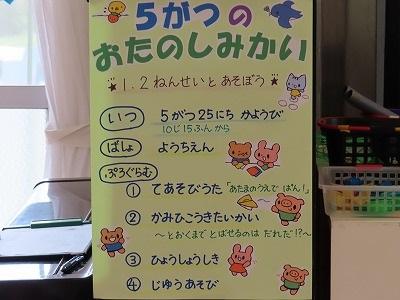 5がつの
おたのしみかい
★1.2ねんせいとあそぼう★
いつ 5がつ25にち かようび
10じ15ふんから
ばしょ ようちえん
ぷろぐらむ
① てあそびうた「あたまのうえで ぱん!」
② かみひこうきたいかい
〜とおくまで とばせるのは だれだ!?〜
③ ひょうしょうしき
④ じゆうあそび